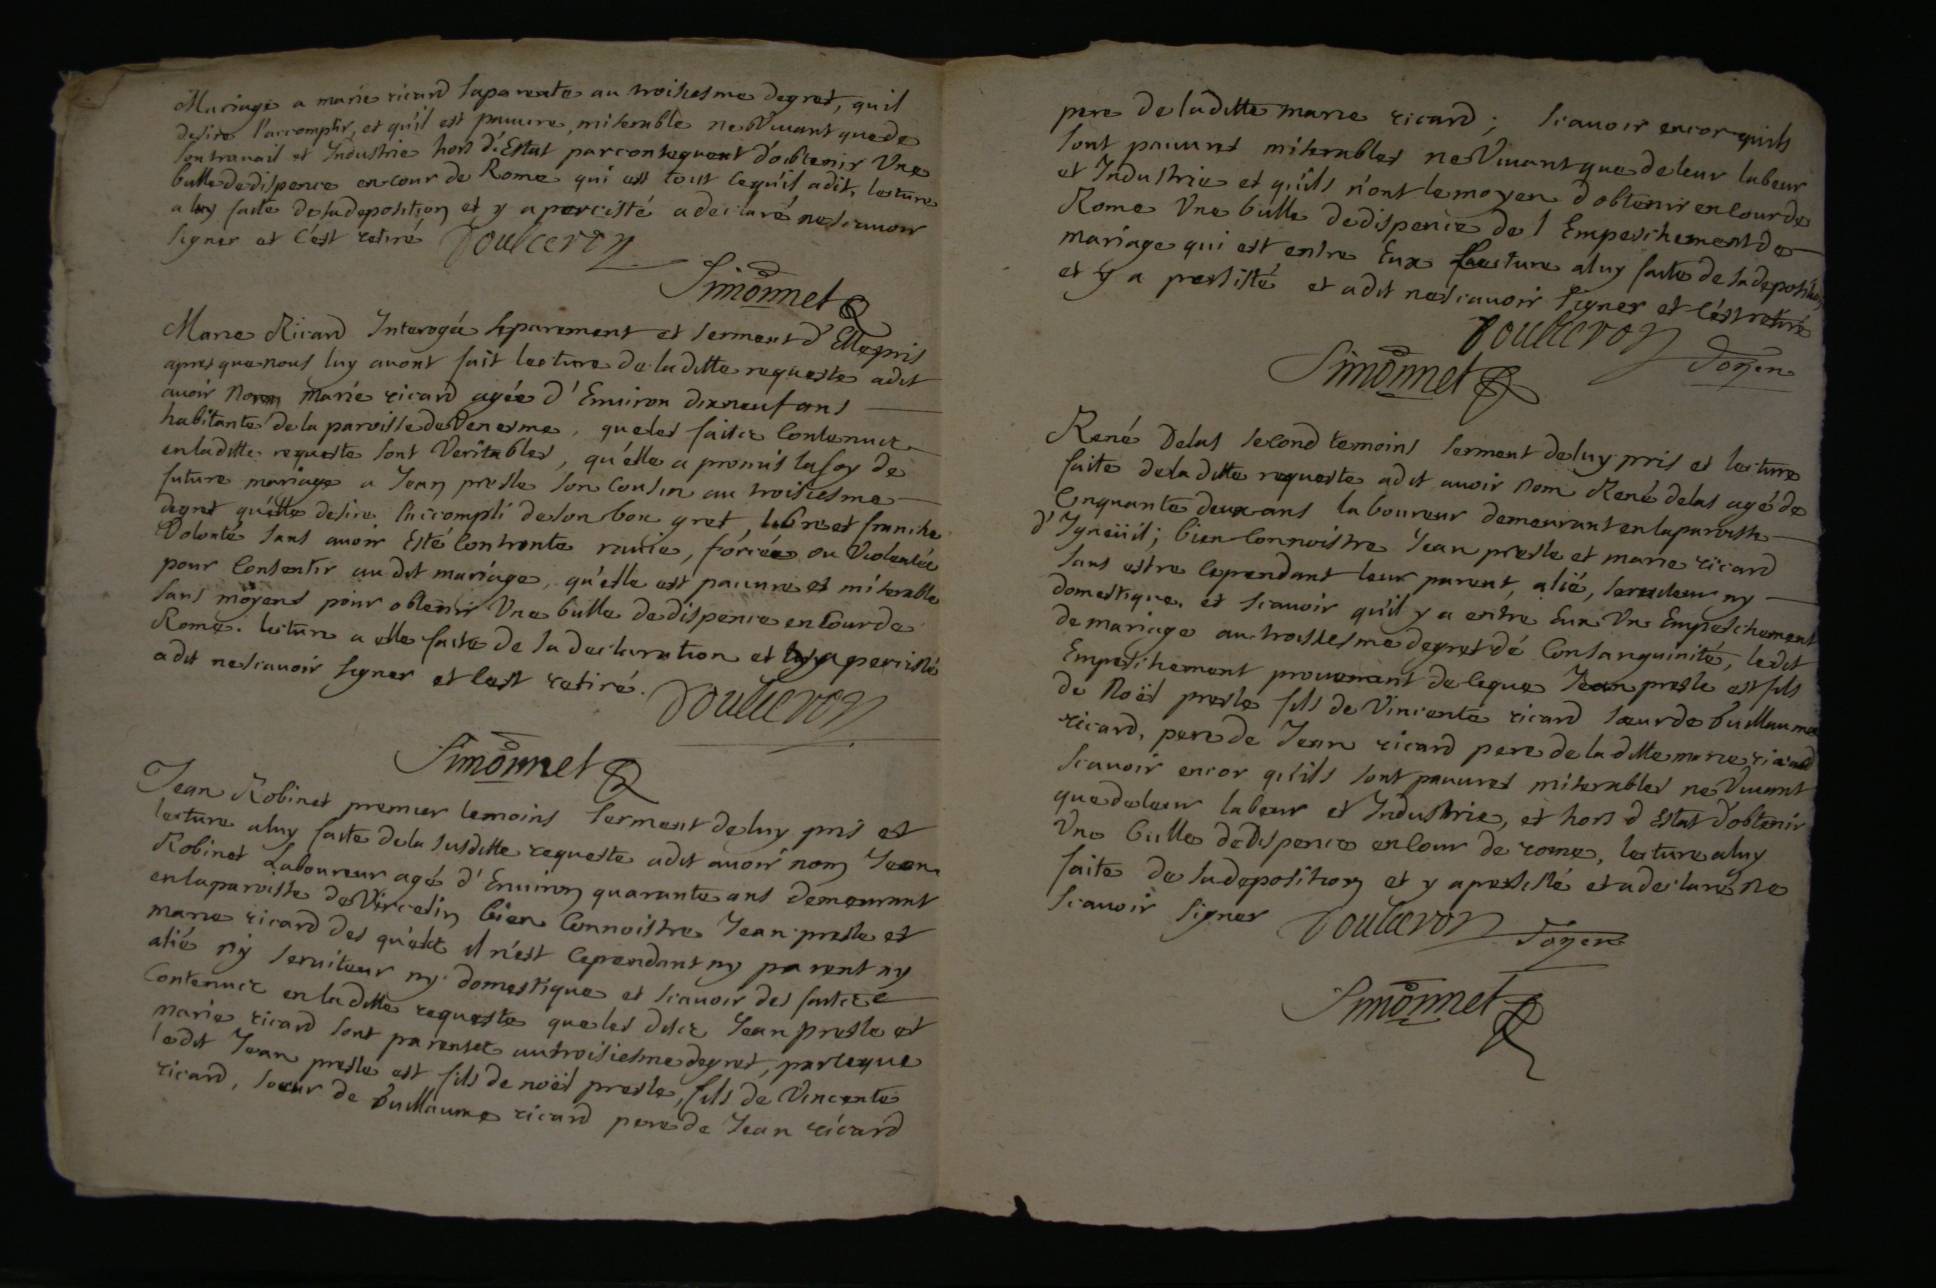 Mariage a marie ricard sa parente au troisiesme degret, qu'il
desire l'accomplir, et qu'il est pauure, miserable ne Viuant que de
son trauail et Industrie hors d'Estat par consequent d'obtenir Vne
bulle de dispence en cour de Rome qui est tout ce qu'il a dit, lecture
a luy faite de sa deposition et y a percisté a declaré ne scauoir
signer et c'est retiré Doulceron
Simonnet
Marie Ricard Interogée separement et serment d'Elle pris
apres que nous luy auont fait lecture de la ditte requeste a dit
auoir Nom marie ricard agée d'Enuiron dix neuf ans
habitante de la paroisse de Venesme, que les faits
en la ditte requeste sont Veritables, qu'elle a promis la foy de
future mariage a Jean presle son Cousin au troisiesme
degret qu'elle desire l'accompli de son bon gret, libre et franche
Volonté sans auoir Esté Contrainte rauie, forcée ou Violentée
pour Consentir au dit mariage, qu'elle est pauure et miserable
sans moyens pour obtenir Vne bulle de dispence en Cour de
Rome. lecture a elle faite de sa declaration et y a percisté
a dit ne scauoir signer et c'est retiré. Doulceron
Simonnet
Jean Robinet premier temoins serment de luy pris et
lecture a luy faite de la susditte requeste a dit auoir nom Jean
Robinet Laboureur agé d'Enuiron quarante ans demeurant
en la paroisse de Vircelin bien Connoistre Jean presle et
marie ricard desquels il n'est Cependant ny parent ny
alié ny seruiteur ny domestique et scauoir des faits
Contenuee en la ditte requeste que les dits Jean presle et
marie ricard sont parents au troisiesme degret, parceque
ledit Jean presle est fils de noël presle, fils de Vincente
ricard, soeur de Guillaume ricard pere de Jean ricard
pere de la ditte marie ricard; scauoir encor qu'ils
sont pauures miserables ne Viuant que de leur labeur
et Industrie et qu'ils n'ont le moyen d'obtenir en Cour de
Rome Vne bulle de dispence de l'Empeschement de
mariage qui est entre Eux Lecture a luy faite de sa deposition
et y a persisté et a dit ne scauoir signer et c'est retiré
Doulceron
Simonnet
René Delas second temoins serment de luy pris et lecture
faite de la ditte requeste a dit auoir nom René delas agé de
Cinquante deux ans laboureur demeurant en la paroisse
d'Igneüil; bien Connoistre Jean presle et marie ricard
sans estre Cependant leur parent, alié, seruiteur ny
domestique, et scauoir qu'il y a entre Eux Vn Empeschement
de mariage au troisiesme degret de Consanguinité, ledit
Empeschement prouenant de ceque Jean presle est fils
de Noël presle fils de Vincente ricard soeur de Guillaume
ricard, pere de Jean ricard pere de la ditte marie ricard
scauoir encor qu'ils sont pauures miserables ne Viuant
que de leur labeur et Industrie, et hors d'Estat d'obtenir
Vne bulle de Dispence en Cour de rome, lecture a luy
faite de sa deposition et y a persisté et a declaré ne
scauoir signer Doulceron
Simonnet